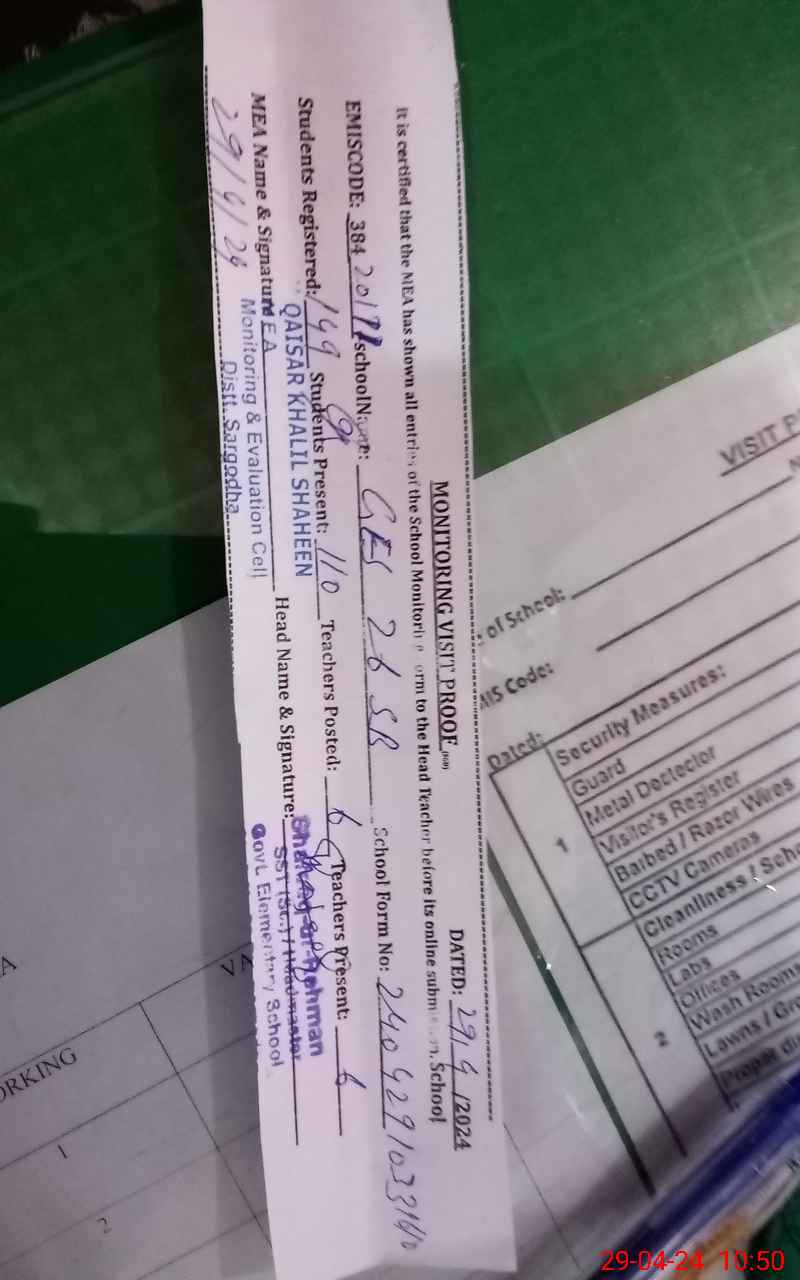 MONITORING VISIT PROOF
DATED: 29/4/2024
It is certified that the MEA has shown all entries of the School Monitoring Form to the Head Teacher before its online submission. School
EMISCODE: 384 schoolName: GES 26 SB School Form No:
Students Registered: 149 Students Present: 110 Teachers Posted: 6 Teachers Present: 6
QAISAR KHALIL SHAHEEN
MEA
Monitoring & Evaluation Cell
Distt. Sargodha
MEA Name & Signature Head Name & Signature:
29/4/24
-ur-Rehman
SST (Sc.) / Headmaster
Govt. Elementary School
VISIT P
of School:
MIS Code:
Dated:
1
Security Measures:
Guard
Metal Dectector
Visitor's Register
Barbed / Razor Wires
CCTV Cameras
2
Cleanliness / Scho
Rooms
Labs
Offices
Wash Rooms
Lawns / Gro
Proper di
A
VA
ORKING
1
2
29-04-24 10:50